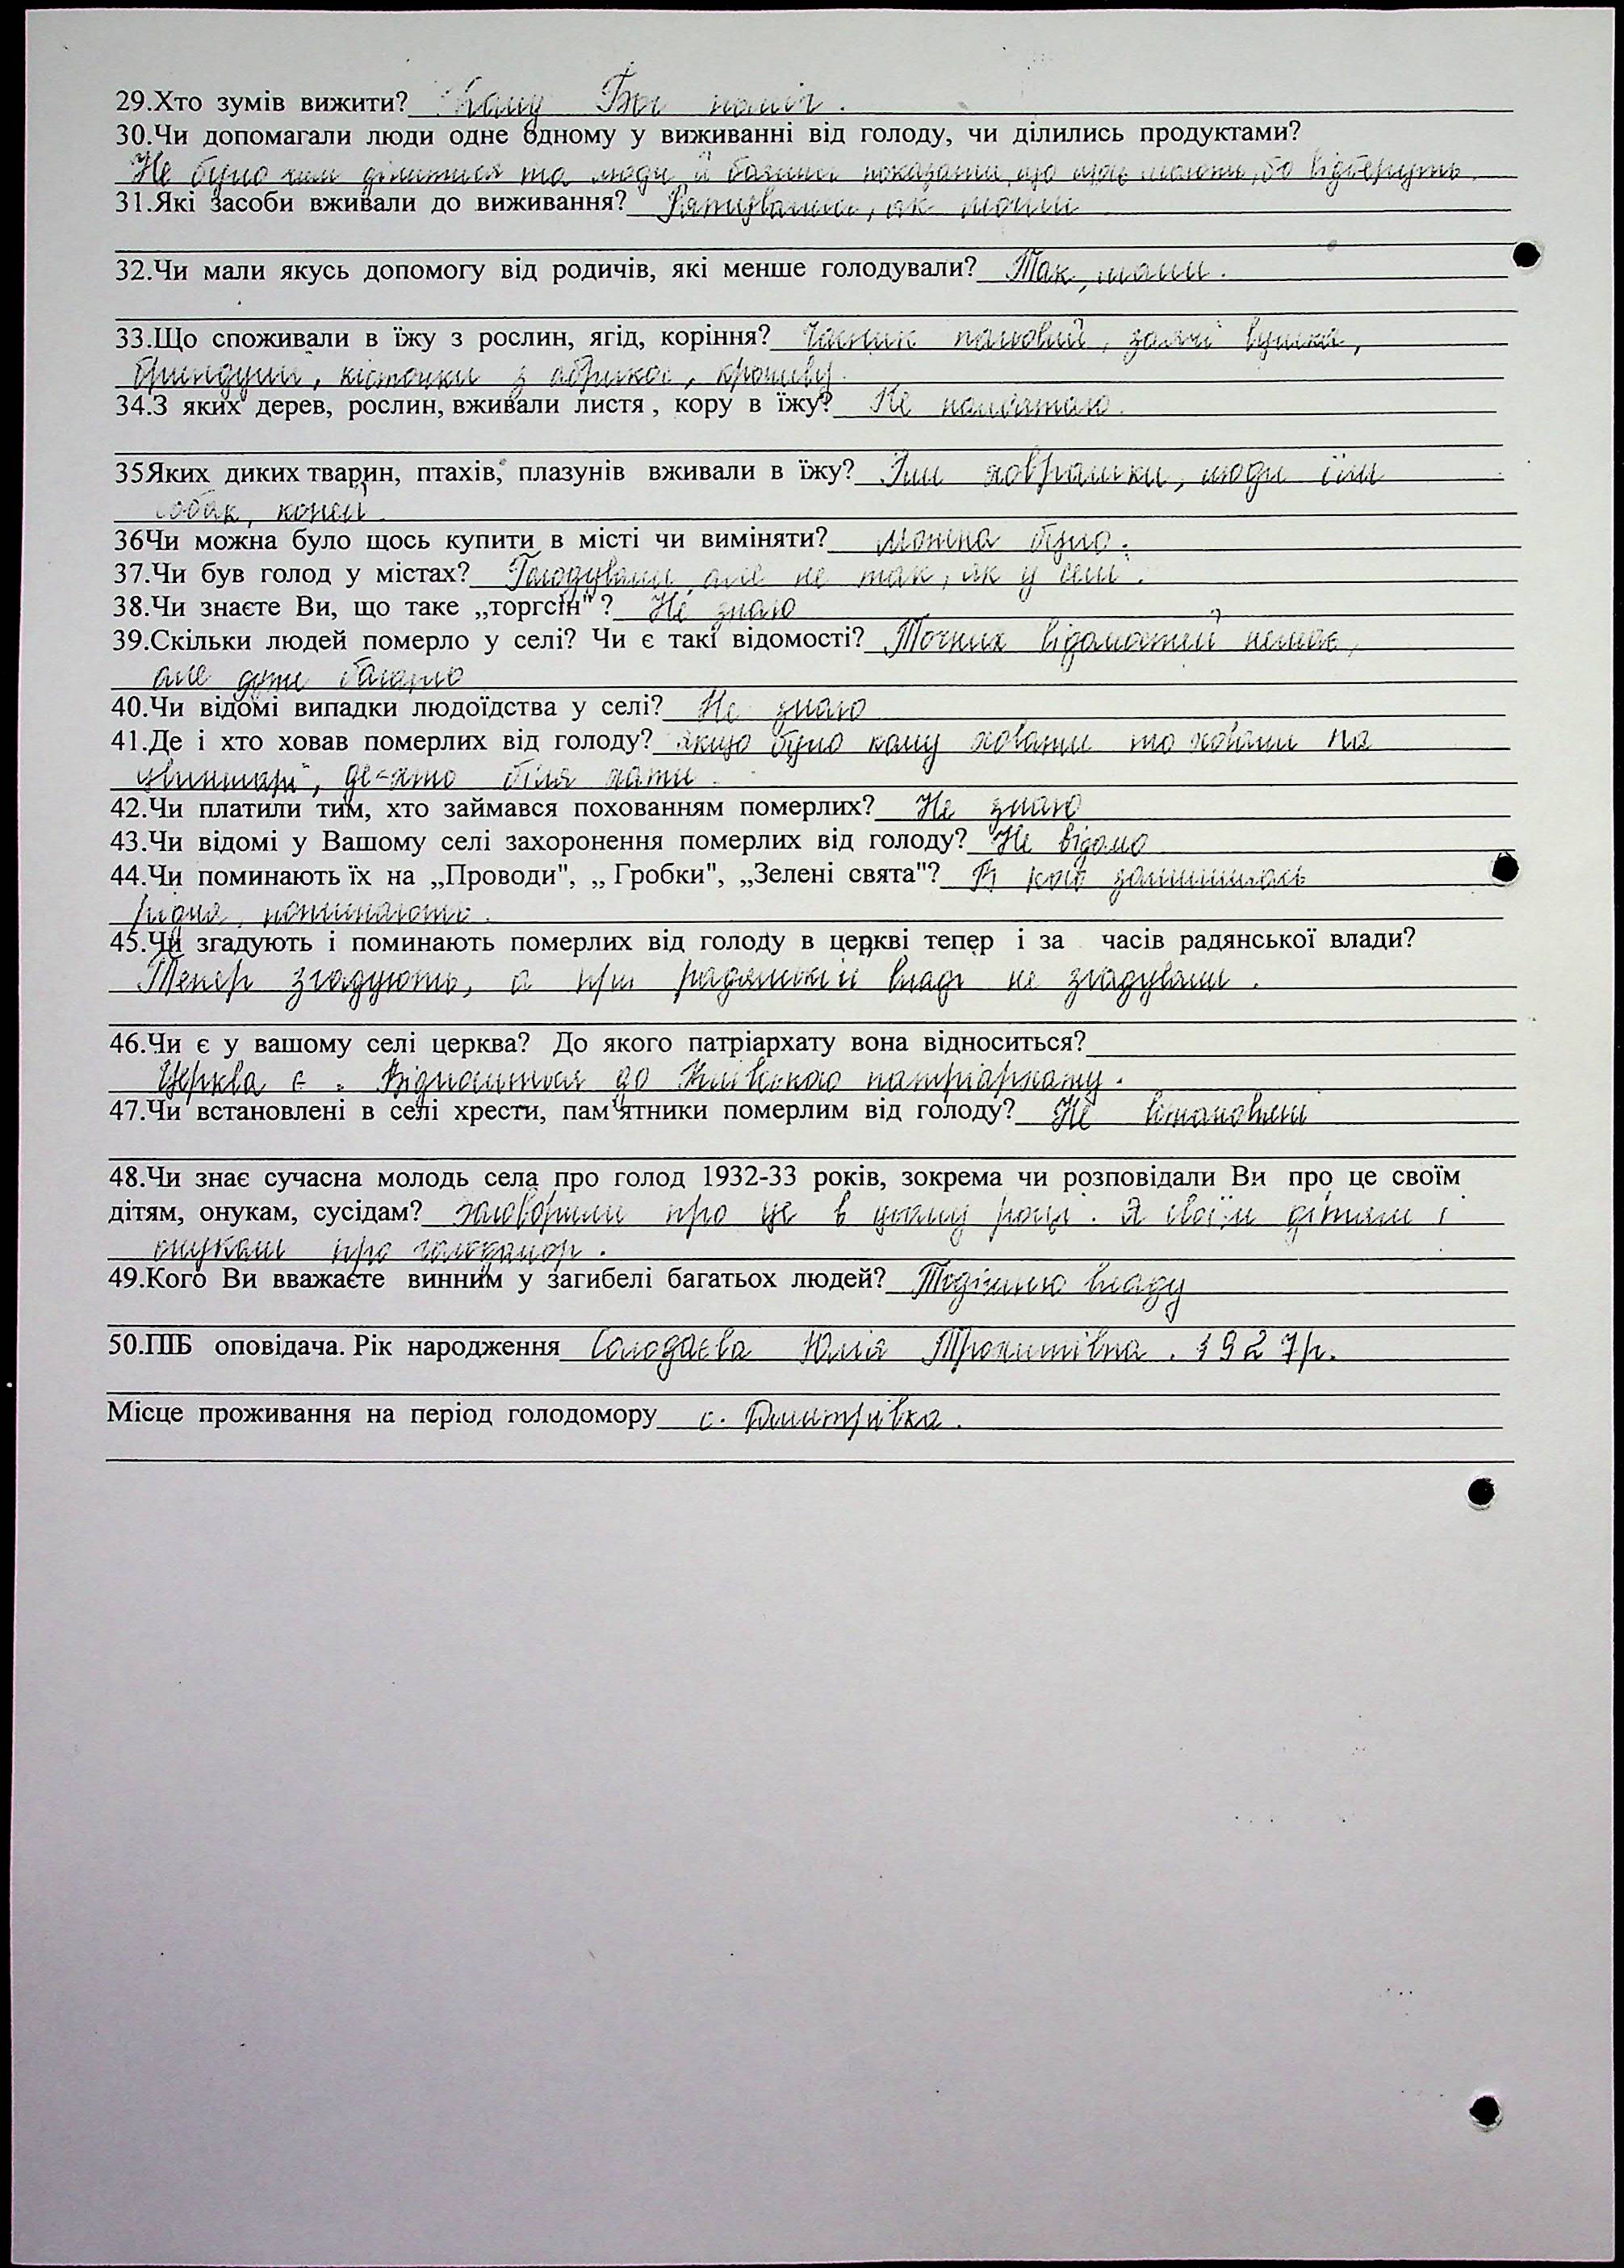 29.Хто зумів вижити? Кому Бог поміг.
30.Чи допомагали люди одне одному у виживанні від голоду, чи ділились продуктами?
Не було чим ділитися та люди й боялися показати, що щось мають, бо відберуть.
31.Які засоби вживали до виживання? Рятувались, як могли
32.Чи мали якусь допомогу від родичів, які менше голодували? Так, мали.
33.Що споживали в їжу з рослин, ягід, коріння? Часник польовий, заячі вушка,
бриндуші, кісточки з абрикос, кропиву.
34.З яких дерев, рослин, вживали листя, кору в їжу? Не пам'ятаю.
35Яких диких тварин, птахів, плазунів вживали в їжу? Їли ховрашки, люди їли
собак, коней
36Чи можна було щось купити в місті чи виміняти? Можна було.
37.Чи був голод у містах? Голодували, але не так, як у селі.
38.Чи знаєте Ви, що таке „торгсін"? Не знаю
39.Скільки людей померло у селі? Чи є такі відомості? Точних відомостей немає,
але дуже багато
40.Чи відомі випадки людоїдства у селі? Не знаю
41.Де і хто ховав померлих від голоду? якщо було кому ховати то ховали на
цвинтарі, де-хто біля хати.
42.Чи платили тим, хто займався похованням померлих? Не знаю
43.Чи відомі у Вашому селі захоронення померлих від голоду? Не відомо
44.Чи поминають їх на „Проводи", „Гробки", „Зелені свята"? В кого залишилась
рідня, поминають.
45.Чи згадують і поминають померлих від голоду в церкві тепер і за часів радянської влади?
Тепер згадують, а при радянській владі не згадували.
46.Чи є у вашому селі церква? До якого патріархату вона відноситься?
Церква є. Відноситься до Київського патріархату.
47.Чи встановлені в селі хрести, пам'ятники померлим від голоду? Не встановлені
48.Чи знає сучасна молодь села про голод 1932-33 років, зокрема чи розповідали Ви про це своїм
дітям, онукам, сусідам? заговорили про це в цьому році. Я своїм дітям і
онукам про голодомор.
49.Кого Ви вважаєте винним у загибелі багатьох людей? Тодішню владу
50.ПІБ оповідача. Рік народження Солодаєва Юлія Трохимівна. 1927р.
Місце проживання на період голодомору с. Дмитрівка.